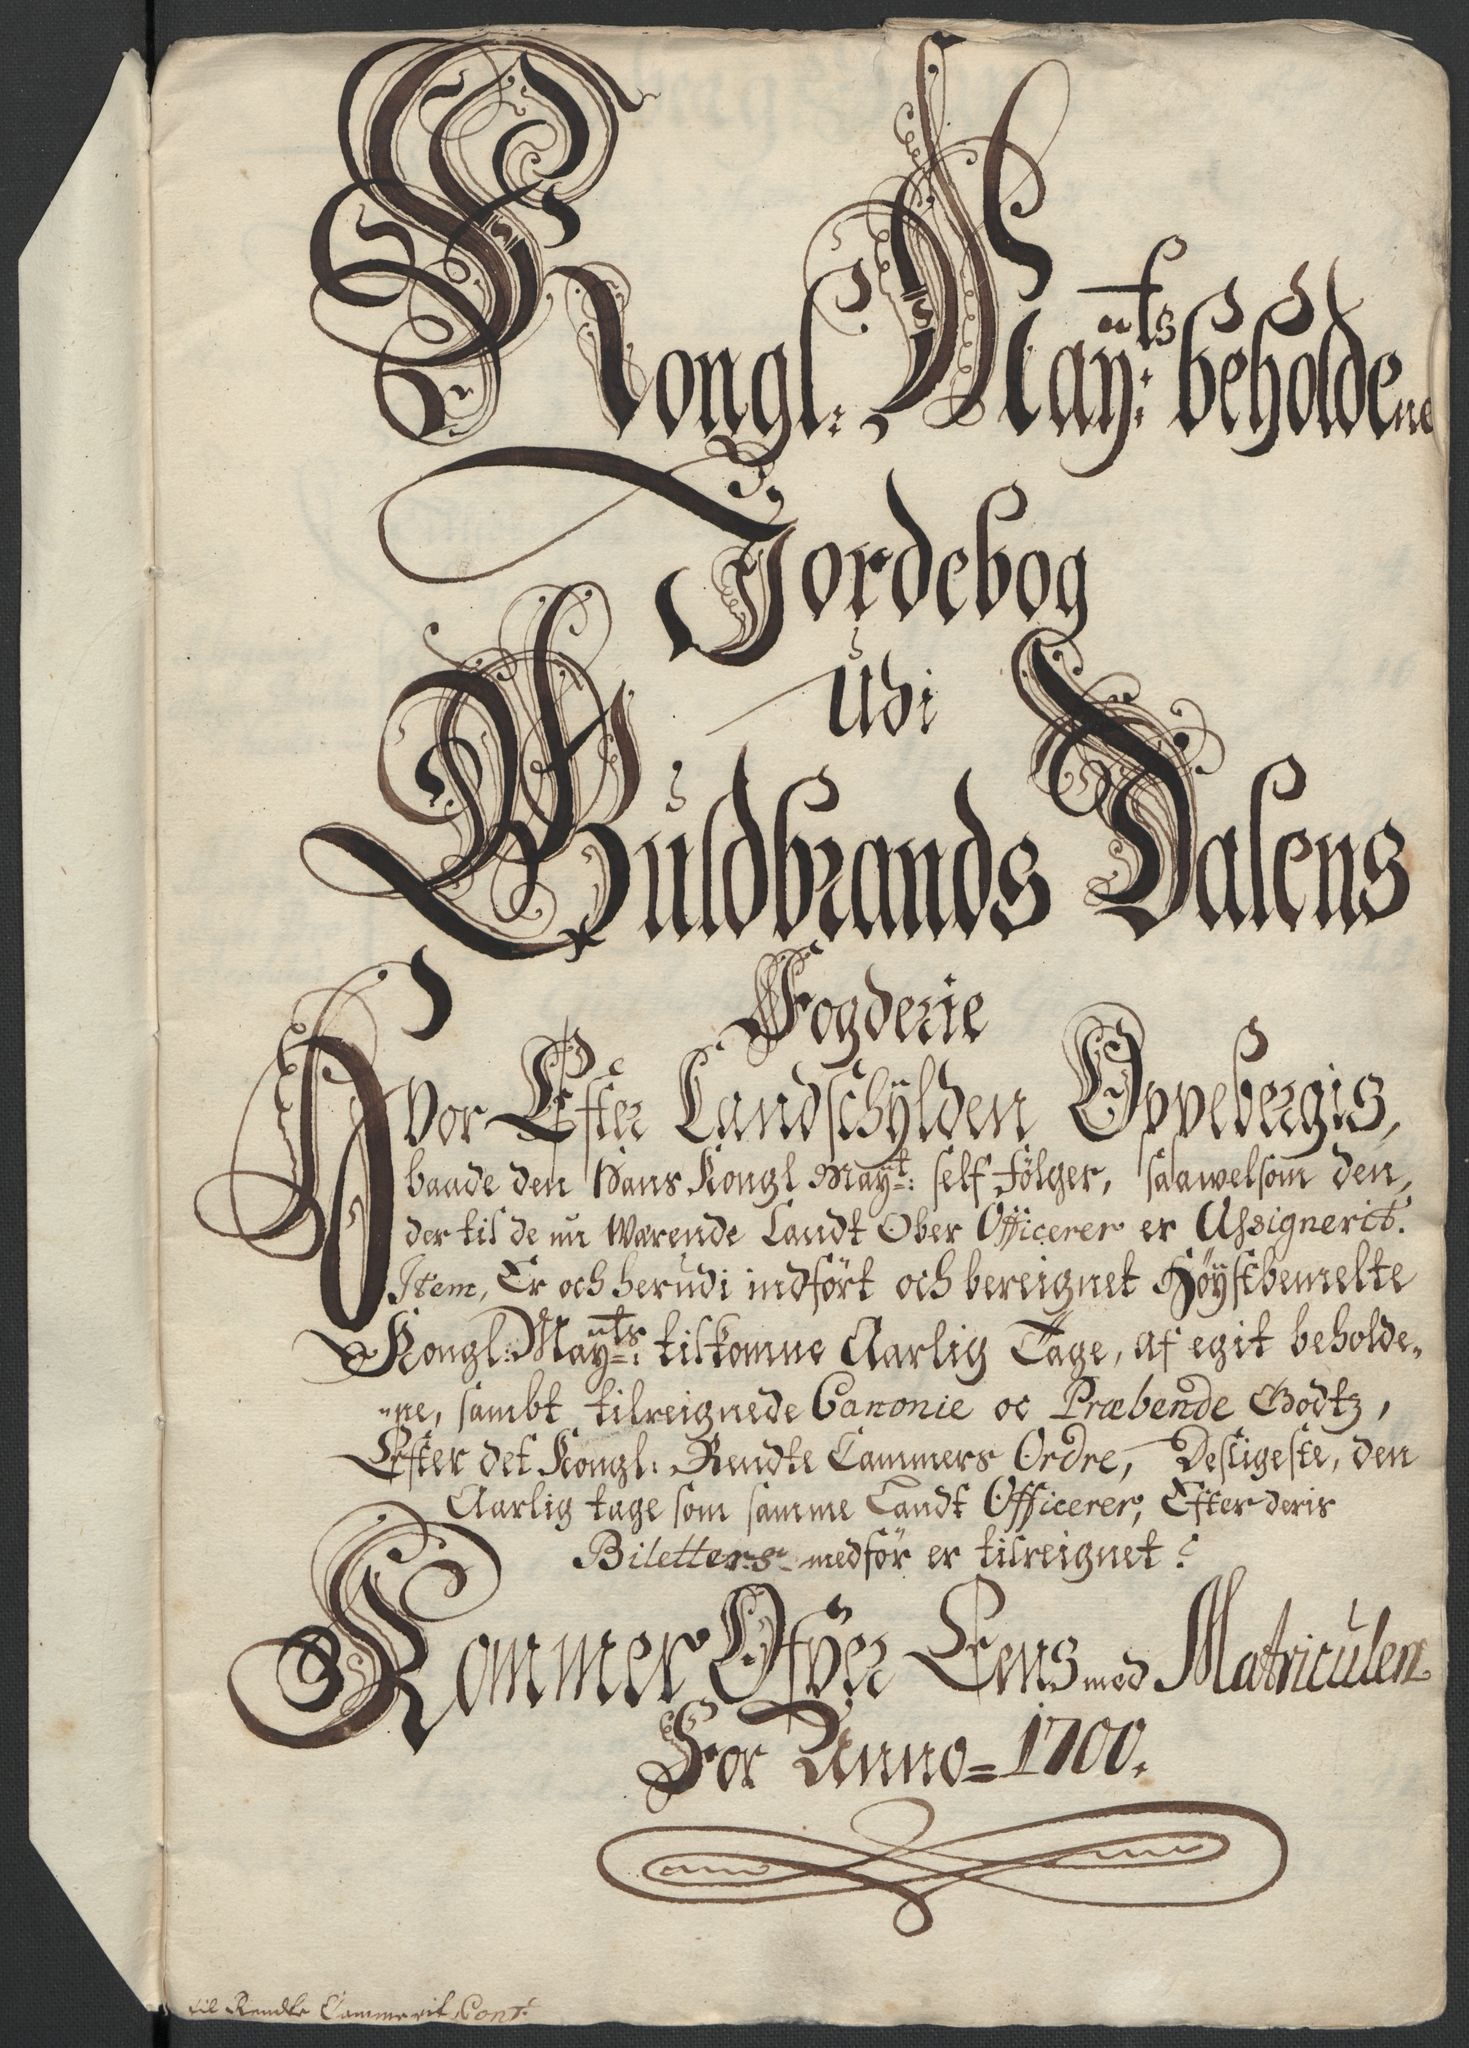 Kongl: Mayts: beholdene
Jordebog
Udi
Guldbrands Dalens
Fogderie
Hvor Efter Landschÿlden Opebergis,
baade den Hans Kongl Mayt: self følger, saawelsom den,
der til de nu Warende Landt Ober Officerer er Assignerit.
Item, Er och herudi indført och bereignet Høystbemelte
Kongl: Mayts: tilkomne Aarlig Tage, af egit beholde„
„ne, sambt tilreignede Canonie oc Præbende Godtz,
Efter det Kongl: Rendte Cammers Ordre, Desligeste, den
Aarlig tage som samme Landt Officerer, Efter deris
Biletters medför er tilreignet:
Kommer Ofver Eens med Matriculen
For Anno = 1700.
til Rendte Cammerit Cont: